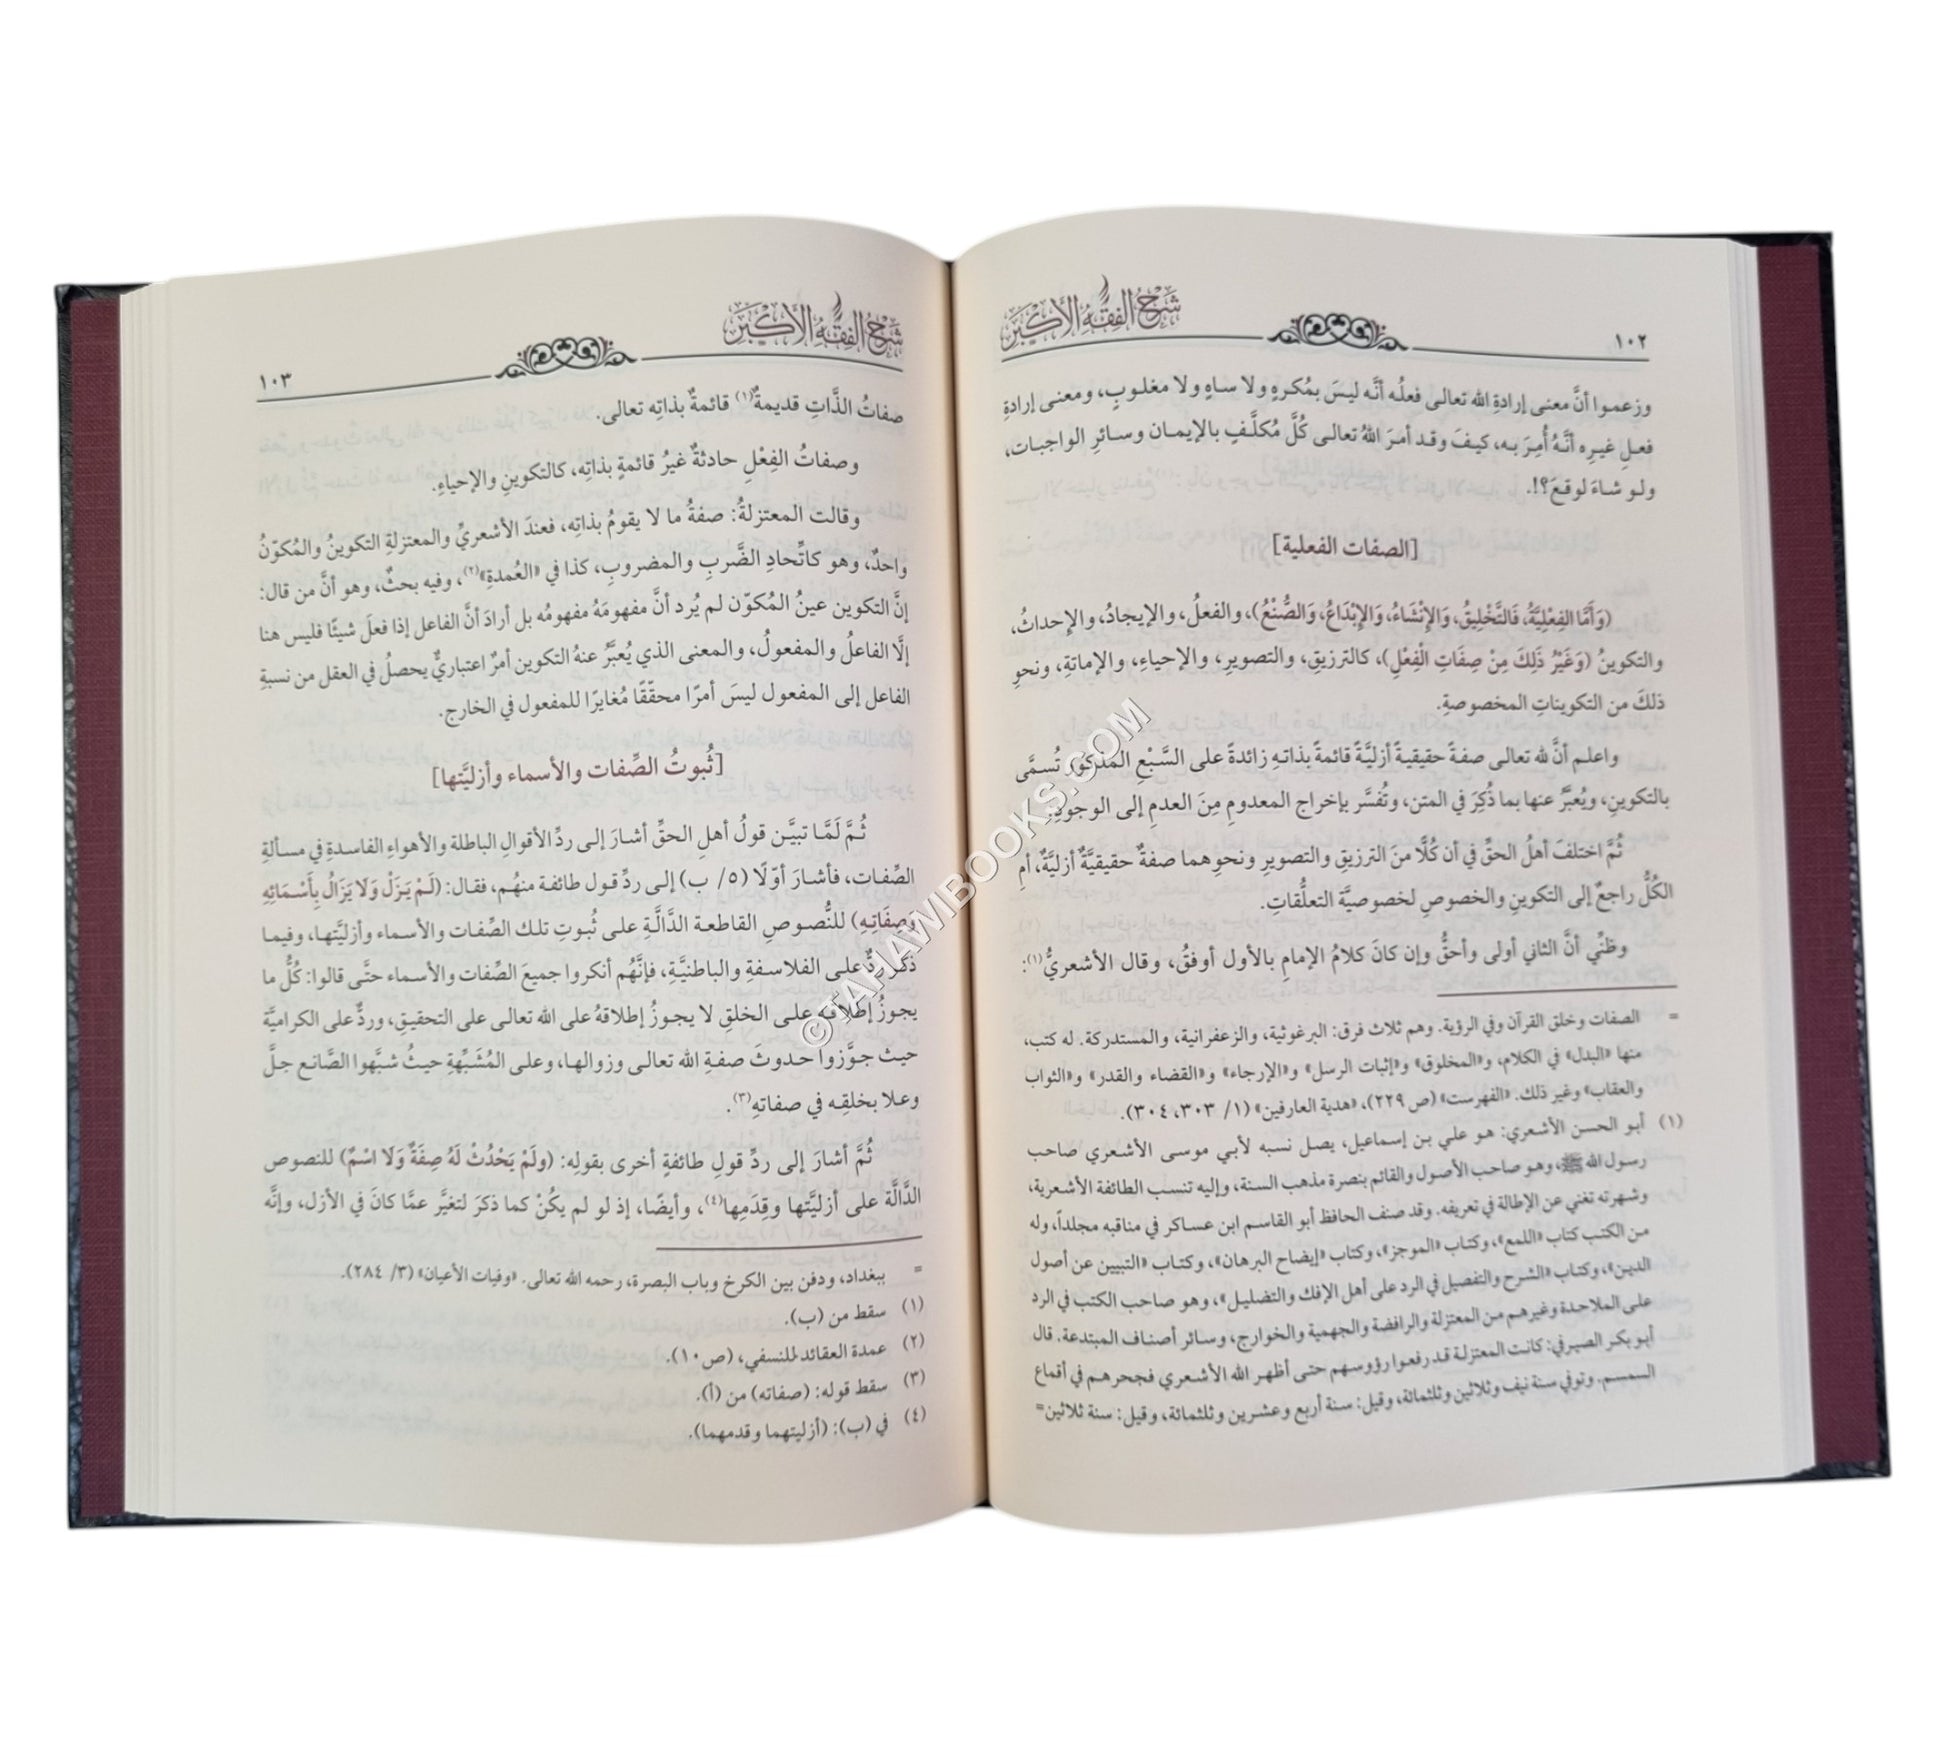 شرح الفقه الأكبر
١٠٢
وزعموا أنَّ معنى إرادةِ الله تعالى فعلَه أنَّه ليسَ بمُكرهٍ ولا ساهٍ ولا مغلوبٍ، ومعنى إرادةِ
فعلِ غيرِه أنَّهُ أُمِرَ به، كيفَ وقد أمرَ اللهُ تعالى كُلَّ مُكلَّفٍ بالإيمان وسائرِ الواجبات،
ولو شاءَ لوقعَ؟!.
[الصفات الفعلية]
(وَأَمَّا الفِعْلِيَّةُ، فَالتَّخْلِيقُ، وَالإِنْشَاءُ، وَالإِبْدَاعُ، وَالصُّنْعُ)، والفعلُ، والإيجادُ، والإحداثُ،
والتكوينُ (وَغَيْرُ ذَلِكَ مِنْ صِفَاتِ الْفِعْلِ)، كالترزيقِ، والتصويرِ، والإحياءِ، والإماتةِ، ونحوِ
ذلكَ من التكويناتِ المخصوصةِ.
واعلم أنَّ لله تعالى صفةً حقيقيةً أزليَّةً قائمةً بذاتهِ زائدةً على السَّبْعِ المذكورِ تُسمَّى
بالتكوينِ، ويُعبَّرُ عنها بما ذُكِرَ في المتن، وتُفسَّر بإخراج المعدومِ مِنَ العدمِ إلى الوجودِ.
ثُمَّ اختلفَ أهلُ الحقِّ في أن كُلًّا منَ الترزيقِ والتصويرِ ونحوِهما صفةٌ حقيقيَّةٌ أزليَّةٌ، أمِ
الكُلُّ راجعٌ إلى التكوينِ والخصوصِ لخصوصيَّة التعلُّقاتِ.
وظنِّي أنَّ الثاني أولى وأحقُّ وإن كانَ كلامُ الإمامِ بالأول أوفقُ، وقال الأشعريُّ(١):
= الصفات وخلق القرآن وفي الرؤية. وهم ثلاث فرق: البرغوثية، والزعفرانية، والمستدركة. له كتب،
منها «البدل» في الكلام، و«المخلوق» و«إثبات الرسل» و«الإرجاء» و«القضاء والقدر» و«الثواب
والعقاب» وغير ذلك. «الفهرست» (ص ٢٢٩)، «هدية العارفين» (١/ ٣٠٣، ٣٠٤).
(١) أبو الحسن الأشعري: هو علي بن إسماعيل، يصل نسبه لأبي موسى الأشعري صاحب
رسول الله ﷺ، وهو صاحب الأصول والقائم بنصرة مذهب السنة، وإليه تنسب الطائفة الأشعرية،
وشهرته تغني عن الإطالة في تعريفه. وقد صنف الحافظ أبو القاسم ابن عساكر في مناقبه مجلداً، وله
من الكتب كتاب «اللمع»، وكتاب «الموجز»، وكتاب «إيضاح البرهان»، وكتاب «التبيين عن أصول
الدين»، وكتاب «الشرح والتفصيل في الرد على أهل الإفك والتضليل»، وهو صاحب الكتب في الرد
على الملاحدة وغيرهم من المعتزلة والرافضة والجهمية والخوارج، وسائر أصناف المبتدعة. قال
أبو بكر الصيرفي: كانت المعتزلة قد رفعوا رؤوسهم حتى أظهر الله الأشعري فجحرهم في أقماع
السمسم. وتوفي سنة نيف وثلاثين وثلثمائة، وقيل: سنة أربع وعشرين وثلثمائة، وقيل: سنة ثلاثين=
شرح الفقه الأكبر
١٠٣
صفاتُ الذَّاتِ قديمةٌ(١) قائمةٌ بذاتِه تعالى.
وصفاتُ الفِعْلِ حادثةٌ غيرُ قائمةٍ بذاتِه، كالتكوينِ والإحياءِ.
وقالت المعتزلةُ: صفةُ ما لا يقومُ بذاتِه، فعندَ الأشعريِّ والمعتزلةِ التكوينُ والمُكوّنُ
واحدٌ، وهو كاتِّحادِ الضَّربِ والمضروبِ، كذا في «العُمدةِ»(٢)، وفيه بحثٌ، وهو أنَّ من قال:
إنَّ التكوين عينُ المُكوّن لم يُرد أنَّ مفهومَهُ مفهومُه بل أرادَ أنَّ الفاعل إذا فعلَ شيئًا فليس هنا
إلَّا الفاعلُ والمفعولُ، والمعنى الذي يُعبَّرُ عنهُ التكوين أمرٌ اعتباريٌّ يحصلُ في العقل من نسبةِ
الفاعل إلى المفعول ليسَ أمرًا محقّقًا مُغايرًا للمفعول في الخارج.
[ثُبوتُ الصِّفات والأسماء وأزليَّتها]
ثُمَّ لَمَّا تبيَّن قولُ أهلِ الحقِّ أشارَ إلى ردِّ الأقوالِ الباطلة والأهواءِ الفاسدةِ في مسألةِ
الصِّفات، فأشارَ أوّلًا (٥/ ب) إلى ردِّ قول طائفة منهُم، فقال: (لَمْ يَزَلْ وَلَا يَزَالُ بِأَسْمَائِهِ
وَصِفَاتِهِ) للنُّصوصِ القاطعة الدَّالَّةِ على ثُبوتِ تلك الصِّفات والأسماء وأزليَّتها، وفيما
ذكرَ ردٌّ على الفلاسفةِ والباطنيَّةِ، فإنَّهُم أنكروا جميعَ الصِّفات والأسماء حتَّى قالوا: كُلُّ ما
يجوزُ إطلاقُه على الخلقِ لا يجوزُ إطلاقهُ على الله تعالى على التحقيقِ، وردٌّ على الكراميَّة
حيث جوَّزوا حدوثَ صفةِ الله تعالى وزوالها، وعلى المُشَبِّهةِ حيثُ شبَّهوا الصَّانع جلَّ
وعلا بخلقِه في صفاتهِ(٣).
ثُمَّ أشارَ إلى ردِّ قولِ طائفةٍ أخرى بقولِه: (ولَمْ يَحْدُثْ لَهُ صِفَةٌ وَلَا اسْمٌ) للنصوص
الدَّالَّة على أزليَّتها وقِدَمِها(٤)، وأيضًا، إذ لو لم يكُنْ كما ذكرَ لتغيَّر عمَّا كانَ في الأزل، وإنَّه
= ببغداد، ودفن بين الكرخ وباب البصرة، رحمه الله تعالى. «وفيات الأعيان» (٣/ ٢٨٤).
(١) سقط من (ب).
(٢) عمدة العقائد للنسفي، (ص١٠).
(٣) سقط قوله: (صفاته) من (أ).
(٤) في (ب): (أزليتهما وقدمهما).
©TAHAWIBOOKS.COM